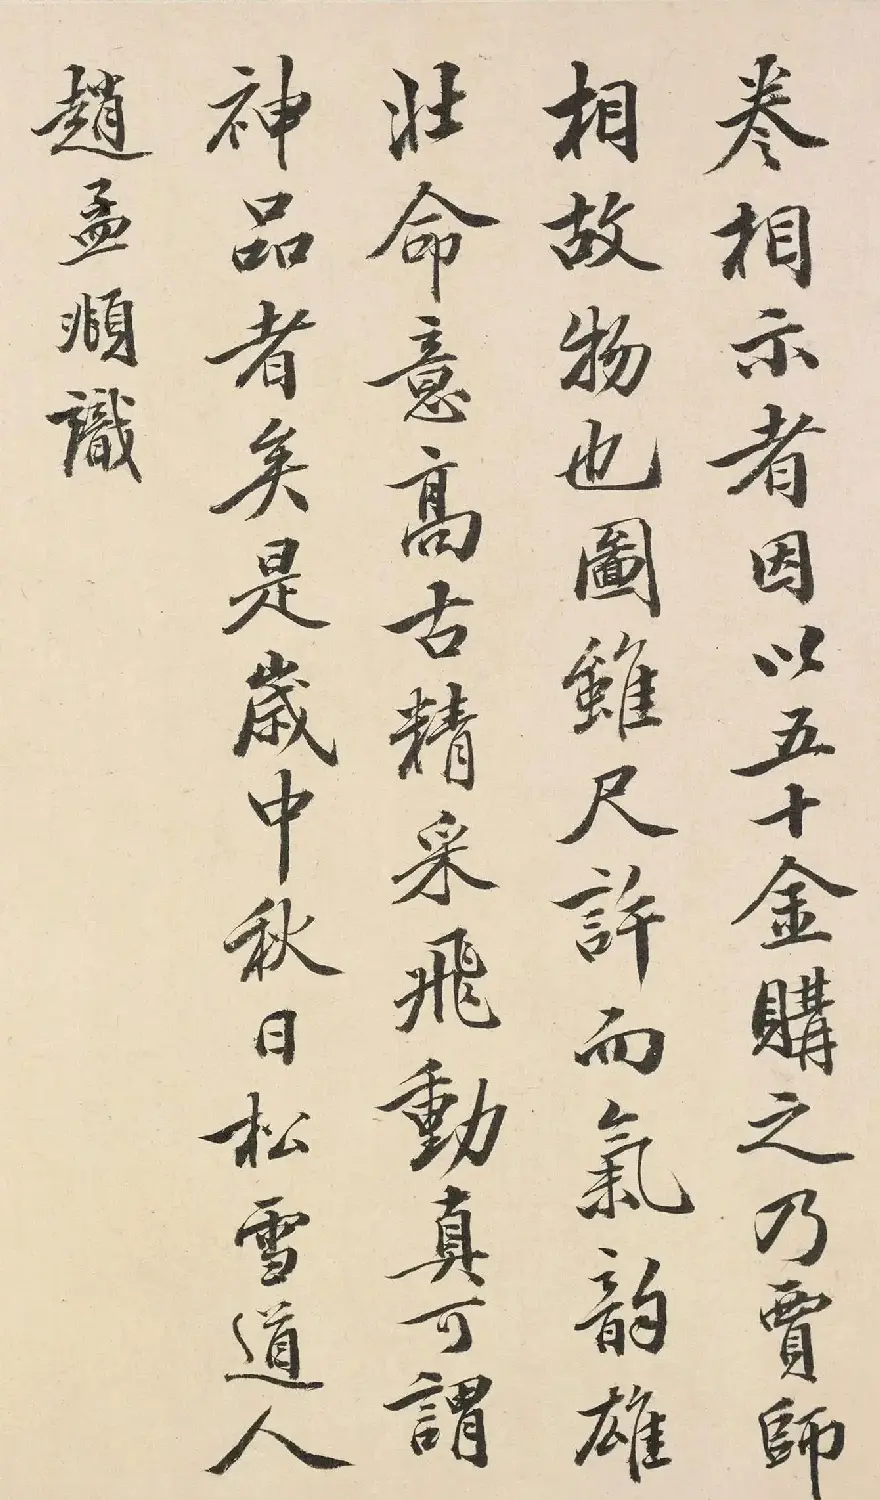 卷相示者因以五十金購之乃賈師
相故物也圖雖尺許而氣韵雄
壯命意高古精采飛動真可謂
神品者矣是歲中秋日松雪道人
趙孟頫識